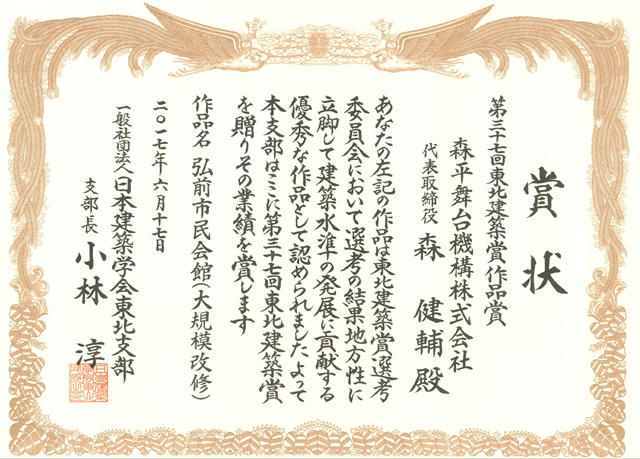 賞状
第三十七回東北建築賞作品賞
森平舞台機構株式会社
代表取締役 森健輔殿
あなたの左記の作品は東北建築賞選考
委員会において選考の結果地方性に
立脚して建築水準の発展に貢献する
優秀な作品として認められましたよって
本支部はここに第三十七回東北建築賞
を贈りその業績を賞します
作品名 弘前市民会館(大規模改修)
二〇一七年六月十七日
一般社団法人日本建築学会東北支部
支部長 小林淳